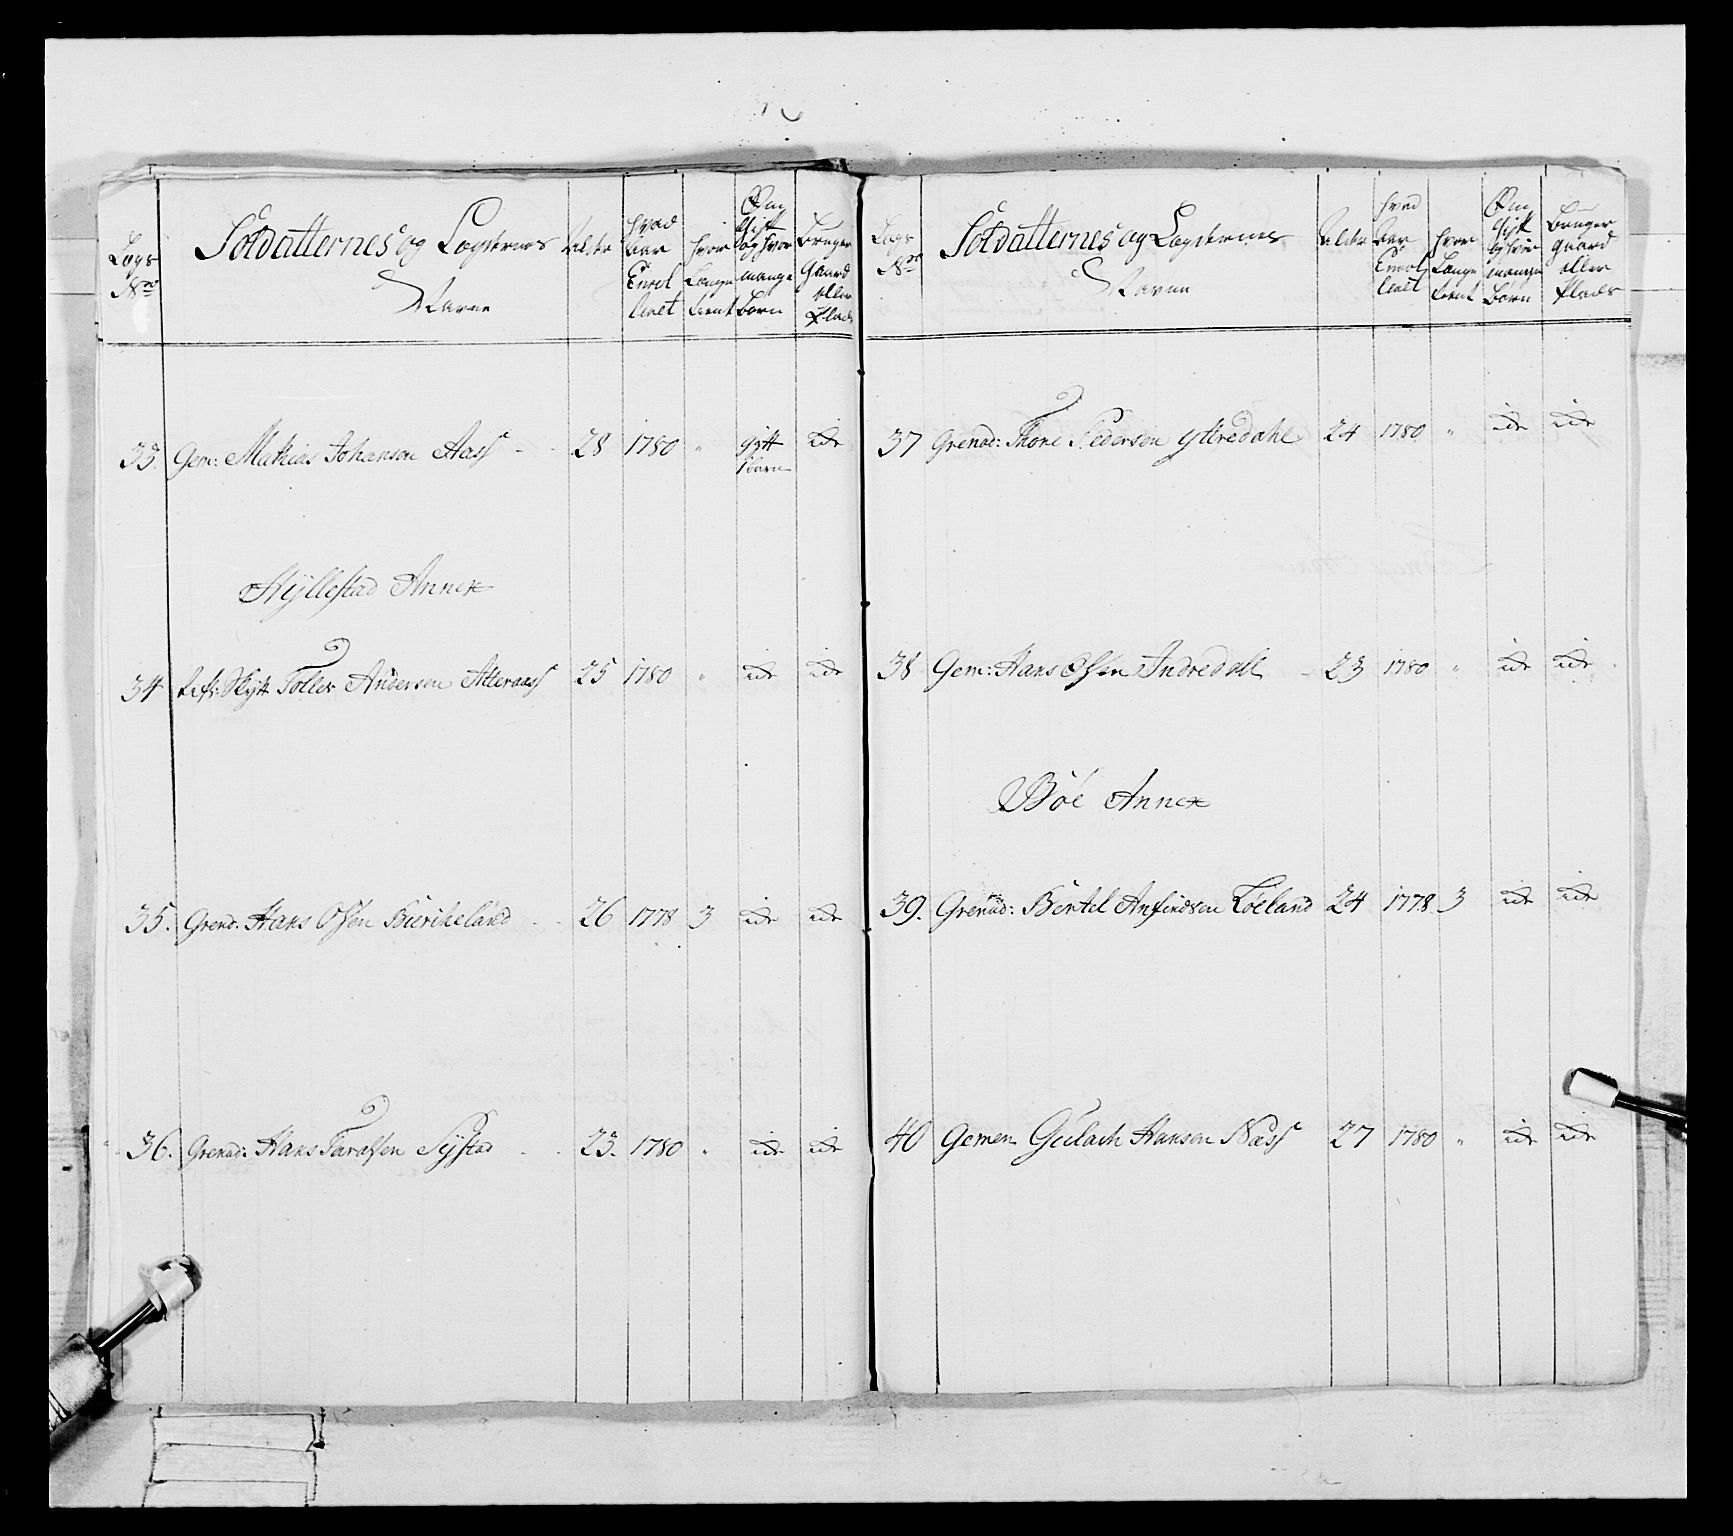 Lægs No
Soldatternes og Lægdernes Navne
Alder
hvad aar Enrollert
hvor Længe tient
Om Gift og hvor mange Børn
Bruger Gaard eller Plads
33. Gem: Mathias Johansen Aass - - 28 1780 " gift 1 barn ide
Hyllestad Annex
34 Refr: Skytt Toller Andersen Atteraass 25 1780 " ide ide
35. Grend. Hans Olsen Birkeland - - 26 1778 3 ide ide
36. Grenad: Hans Taralsen Systad - - 23. 1780 " ide ide
Lægs No
Soldatternes og Lægdernes Navne
Alder
hvad aar Enrollert
hvor Længe tient
Om Gift og hvor mange Børn
Bruger Gaard eller Plads
37 Grenad: Thore Pedersen Ytredahl 24 1780 " ide ide
38 Gem: Hans Olsen Indredall - 23 1780 " ide ide
Bøe Annex
39. Grenad: Bertel Anfindsen Løeland 24 1778 3 ide ide
40 Gemen Gulach Hansen Næss 27 1780 " ide ide